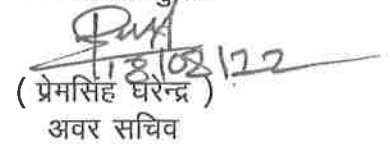 18/08/22
( प्रेमसिंह घरेन्द्र )
अवर सचिव